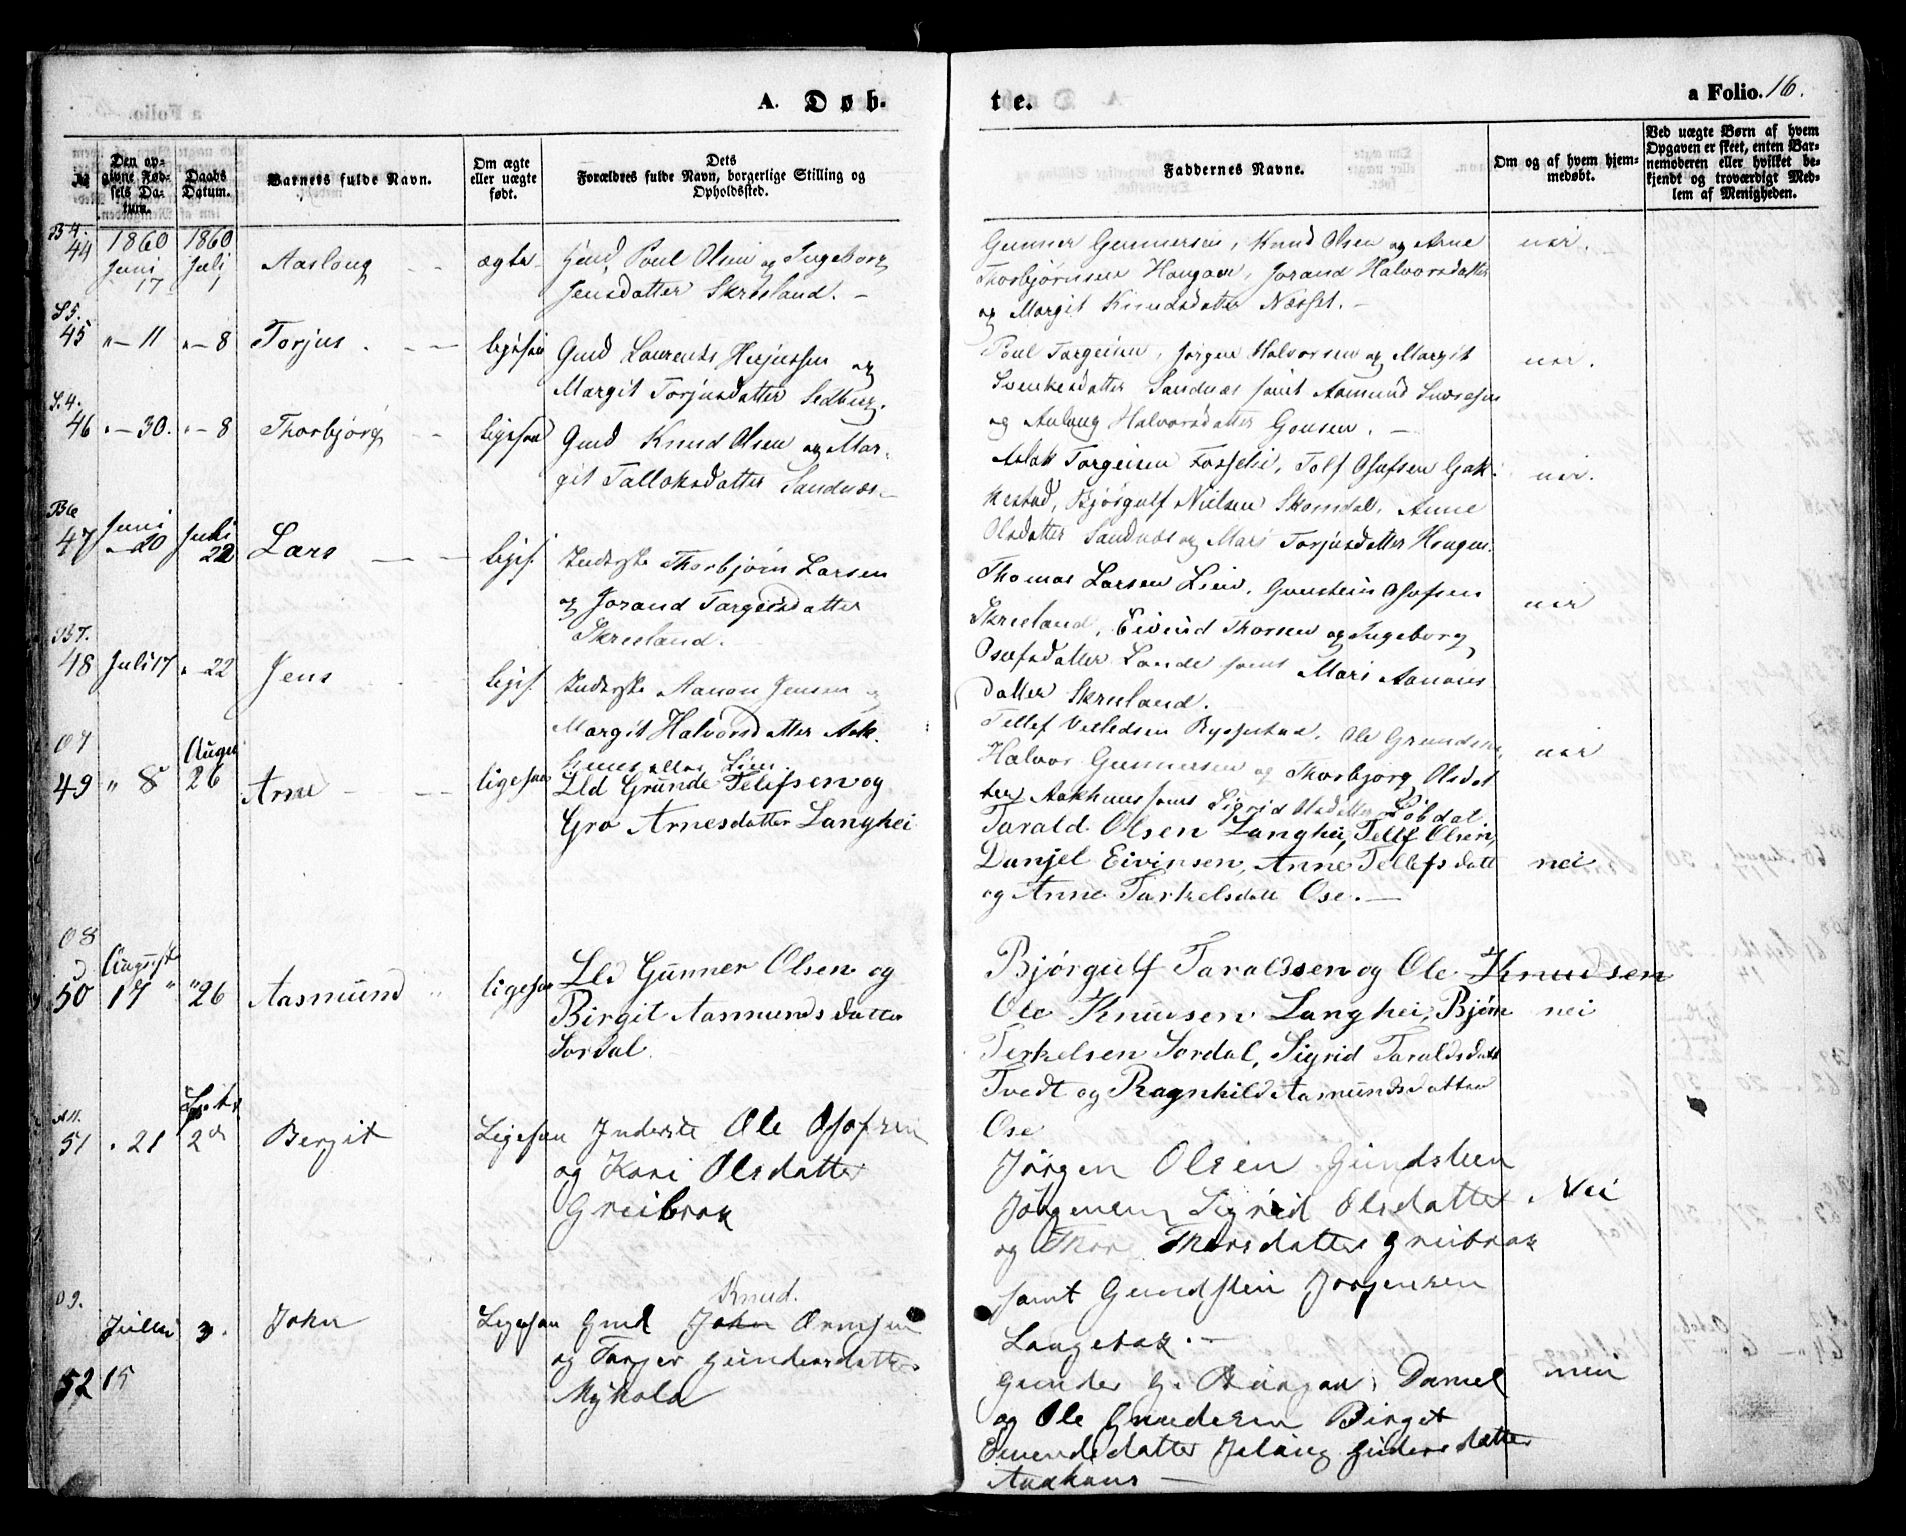 A. Døb-
te.
a Folio. 16.
№
Den op-
givne Fød-
sels Da-
tum.
Daabs
Datum.
Barnets fulde Navn.
Om ægte
eller uægte
født.
Dets
Forældres fulde Navn, borgerlige Stilling og
Opholdssted.
Faddernes Navne.
Om og af hvem hjem-
medøbt.
Ved uægte Børn af hvem
Opgaven er skeet, enten Bar-
nemoderen eller hvilket be-
kjendt og troværdigt Med-
lem af Menigheden.
B 4.
44
1860
Juni
17
1860
Juli
1
Aasloug
ægte
Poul Olsen og Ingeborg
Jensdatter Skreeland.
Gunner Gunnersen, Knud Olsen og Arne
Thorbjørnsen Haugen, Jorand Halvorsdatter
og Margit Knudsdatter Næsset.
nei.
S 5.
45
" - 11
" - 8
Torjus
ligesaa
Gmd Laurents
Margit Torjusdatter Sedberg.
Poul Targeisen, Jørgen Halvorsen og Margit
Svenkesdatter Sandnæs samt Aasmund
og Aslaug Halvorsdatter
nei.
S. 4.
46
" - 30.
" - 8
Thorbjørg
ligesaa
Gmd Knud Olsen og Mar-
git Tallaksdatter Sandnæs
Aslak Targeisen Tolf Osufsen
Bjørgulf Nielsen Skomdal, Anne
Olsdatter Sandnæs og Mari Torjusdatter Haugen.
nei.
B 6
47
Juni
" 20
Juli
22
Lars
ligs.
Inderste Thorbjørn Larsen
og Jorand Targeisdatter
Skreeland.
Thomas Larsen Lien, Gunstein Osufsen
Skreeland, Eivind Thorsen og Ingeborg
Osufsdatter Lande samt Mari Aanons
datter Skreeland.
nei
B 7.
48
Juli 17
" - 22
Jens
ligs.
Inderste Aanon Jensen og
Margit Halvorsdatter Aak-
huus eller Lien.
Tellef Rygestad, Ole
Halvor Gunnersen og Thorbjørg Olsdat
ter Aakhuus samt Sigrid Olsdatter Løbdal
nei
O 7
49
" 8
Augu
26
Arne
ligesaa
Lld Grunde Telefsen og
Gro Arnesdatter Langhei
Tarald Olsen Langhei, Tellef Olsen,
Danjel Eivinsen, Anne Tellefsdatt
og Anne Tarkelsdatt Ose.
nei
O 8
50
August
17 "
" 26
Aasmund
ligesaa
Lld Gunner Olsen og
Birgit Aasmundsdatter
Sordal
Bjørgulf Taraldssen og Ole Knudsen
Ole Knudsen Langhei, Bjørn
Terkelsen Sordal, Sigrid Taraldsdatt
Tvedt og Ragnhild Aasmundsdatter
Ose
nei
A 11.
51
" 21
Septr
2
Bergit
Ligesaa
Inderste Ole Osofsen
og Kari Olsdatter
Greibrok
Jörgen Olsen Gundsteen
Jörgensen Sigrid Olsdatter
og Thor Thorsdatter Greibrok
samt Gundstein Jorgensen
Langebak.
Nei
O 9.
52
Julli
15
3.
John
Ligesaa
Knud.
Gmd John Ormsen
og Targer Gundersdatter
Mykolu
Gunder G. Daniel
og Ole Gundersen Birget
Eivendsdatter Gundersdatter
Aadhuus
nei